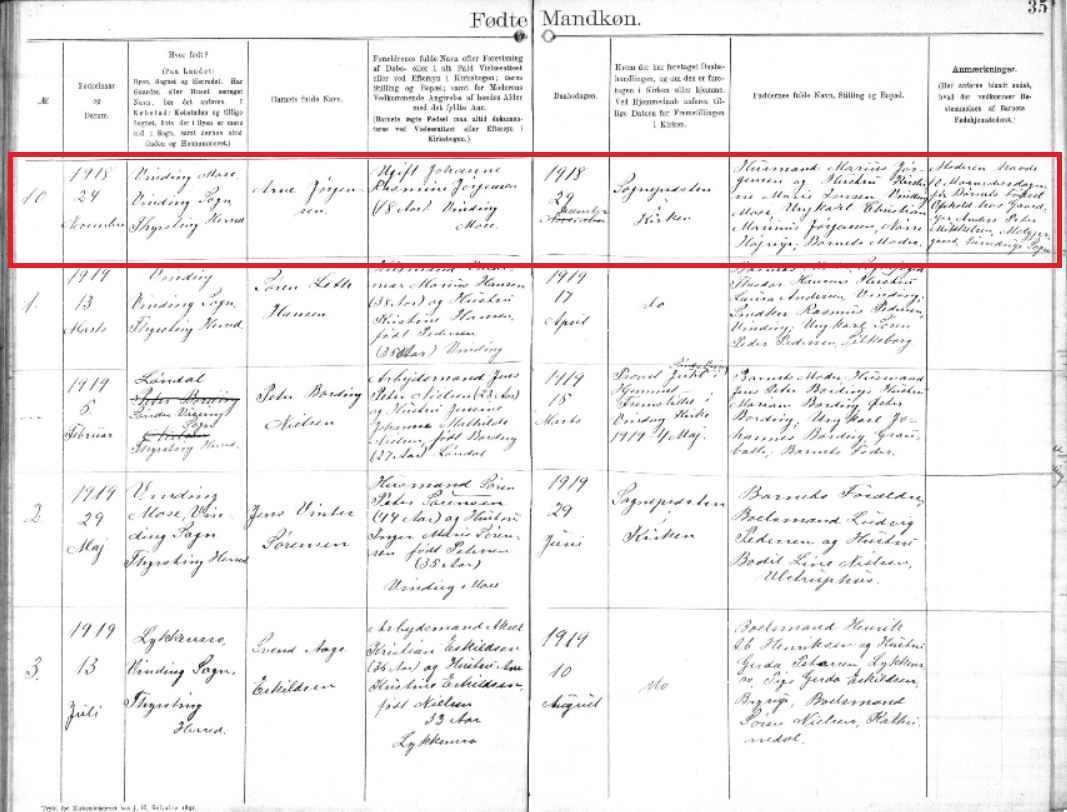 35
Fødte Mandkøn.
№
Fødselsaar
og
Datum.
Hvor født?
(Paa Landet:
Byen, Sognet og Herredet. Har
Gaarden eller Huset særeget
Navn, bør det anføres. I
Købstad: Købstaden og tillige
Sognet, hvis der i Byen er mere
end 1 Sogn, samt derhos altid
Gaden og Husnummeret.)
Barnets fulde Navn.
Forældrenes fulde Navn efter Forevisning
af Døbe- eller i alt Fald Vielsesattest
eller ved Eftersyn i Kirkebogen; deres
Stilling og Bopæl; samt for Moderens
Vedkommende Angivelse af hendes Alder
med det fyldte Aar.
(Barnets ægte Fødsel maa altid dokumen-
teres ved Vielsesattest eller Eftersyn i
Kirkebogen.)
Daabsdagen.
Hvem der har foretaget Daabs-
handlingen, og om den er fore-
tagen i Kirken eller hjemme.
Ved Hjemmedaab anføres til-
lige Datum for Fremstillingen
i Kirken.
Faddernes fulde Navn, Stilling og Bopæl.
Anmærkninger.
(Her anføres blandt andet,
hvad der vedkommer Be-
stemmelsen af Barnets
Fødehjemstedsret.)
10.
1918
24
November
Vinding Mose,
Vinding Sogn
Thyrsting Herred
Arne Jørgen-
sen.
Ugift Johanne
Rasmine Jørgensen
(18 Aar) Vinding
Mose.
1918
29
December
Sognepræsten
i
Kirken
Husmand Marius Jør-
gensen og Hustru Kirsti-
ne Marie Jensen Vinding
Mose, Ungkarl Christian
Marinus Jørgensen, Nørre
Højsrije; Barnets Moder.
Moderen havde
10 Maanedersdagen
før Barnets Fødsel
Ophold hos Gaard-
ejer Anders Peter
Mikkelsen,
Sogn
1.
1919
13
Marts
Vinding
Vinding Sogn,
Thyrsting Herred.
Søren Leth
Hansen
mar Marius Hansen
(38 Aar) og Hustru
Kirstine Hansen,
født Pedersen
(35 Aar) Vinding
1919
17
April
do
Theodor Hansens Hustru
Laura Andersen, Vinding;
Snedker Rasmus Pedersen,
Vinding; Ungkarl Søren
Peder Pedersen, Silkeborg
1919
5
Februar
Løndal
Peter Bording
Sønder Vissing
Sogn
Thyrsting Herred.
Peter Bording
Nielsen
Arbejdsmand Jens
Peter Nielsen (23 Aar)
og Hustru Jensine
Johanne Mathilde
Nielsen, født Bording
(27 Aar) Løndal
1919
15
Marts
Provst Juhl
Hjemmet
Fremstillet i
Vinding Kirke
1919 4 Maj.
Barnets Moder, Husmand
Jens Peter Bordings Hustru
Mariane Bording, Peter
Bording; Ungkarl Jo-
hannes Bording, Grøn-
bæk; Barnets Fader.
2.
1919
29
Maj
Vinding
Mose, Vin-
ding Sogn
Thyrsting Herred
Jens Vinter
Sørensen
Husmand Søren
Peter Sørensen
(44 Aar) og Hustru
Inger Marie Søren-
sen født Petersen
(35 Aar)
Vinding Mose
1919
29
Juni
Sognepræsten
i
Kirken
Barnets Forældre,
Boelsmand Ludvig
Pedersen og Hustru
Bodil Line Nielsen,
Ulstruphus.
3.
1919
13
Juli
Lykkensro,
Vinding Sogn,
Thyrsting
Herred.
Svend Aage
Eskildsen
Arbejdsmand Aksel
Kristian Eskildsen
(36 Aar) og Hustru Ane
Kirstine Eskildsen,
født Nielsen
33 Aar
Lykkensro
1919
10
August
do
Boelsmand Henrik
Ib Henriksen og Hustru
Gerda Petersen, Lykkens-
ro, Pige Gerda Eskildsen,
Boelsmand
Søren Nielsen, Kathri-
nedal.
Trykt for Kirkeministeriet hos J. H. Schultz 1891.